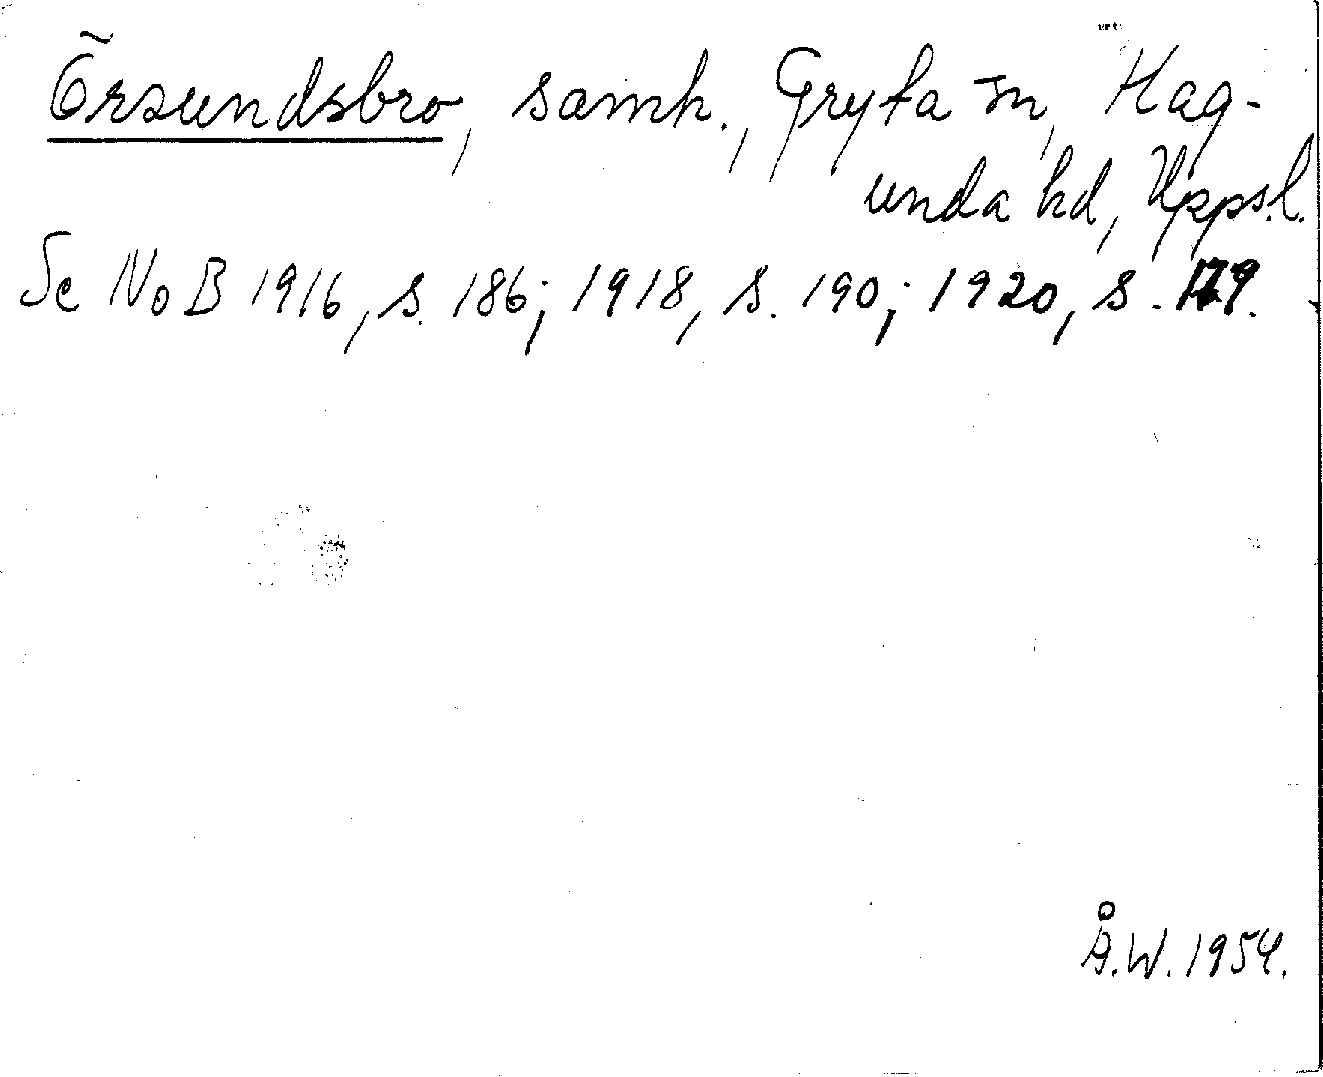 Örsundsbro, samh., Gryta sn, Hag-
unda hd, Uppsl.
Se NoB 1916, s. 186; 1918, s. 190; 1920, s. 179.
Å.W. 1954.